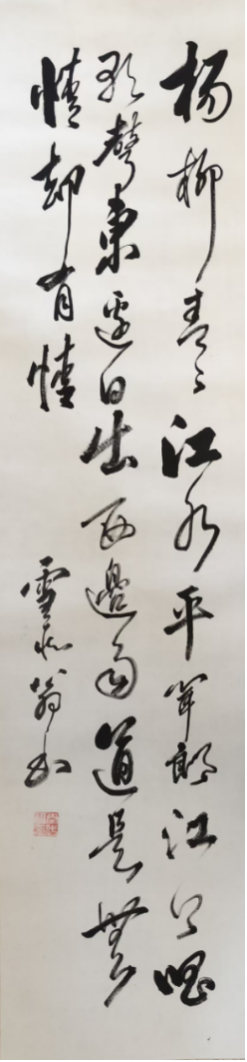 楊柳青々江水平聞郎江上唱
歌聲東邊日出西邊雨道是無
情却有情
翁書